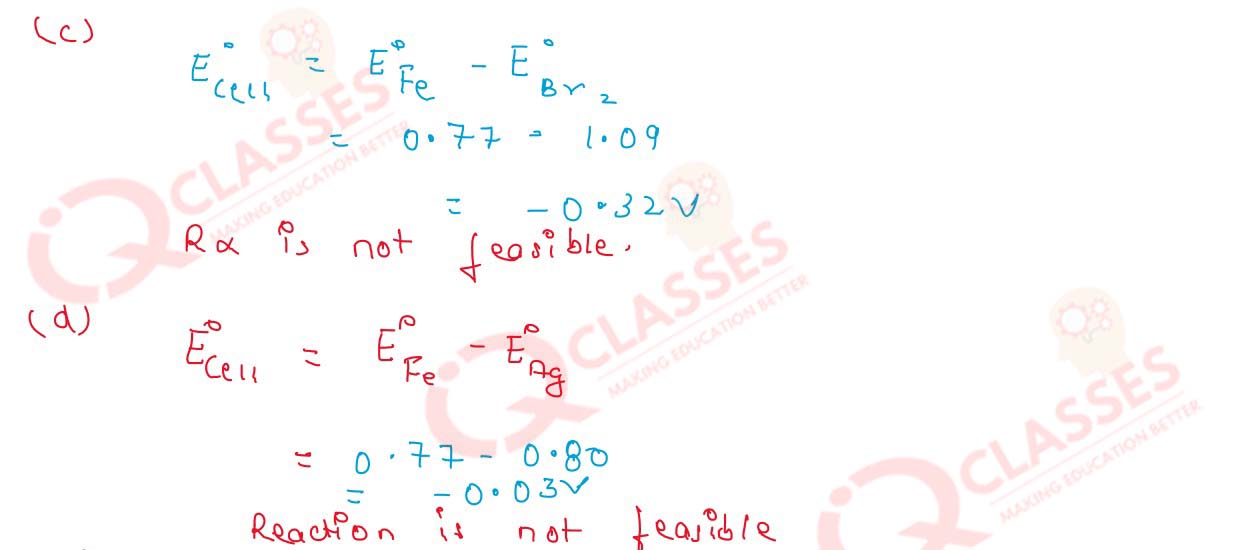 (c)
E°cell = E°Fe - E°Br2
= 0.77 - 1.09
= -0.32V
Rx is not feasible.
(d)
E°cell = E°Fe - E°Ag
= 0.77 - 0.80
= -0.03V
Reaction is not feasible
iQ CLASSES
MAKING EDUCATION BETTER
iQ CLASSES
MAKING EDUCATION BETTER
iQ CLASSES
MAKING EDUCATION BETTER